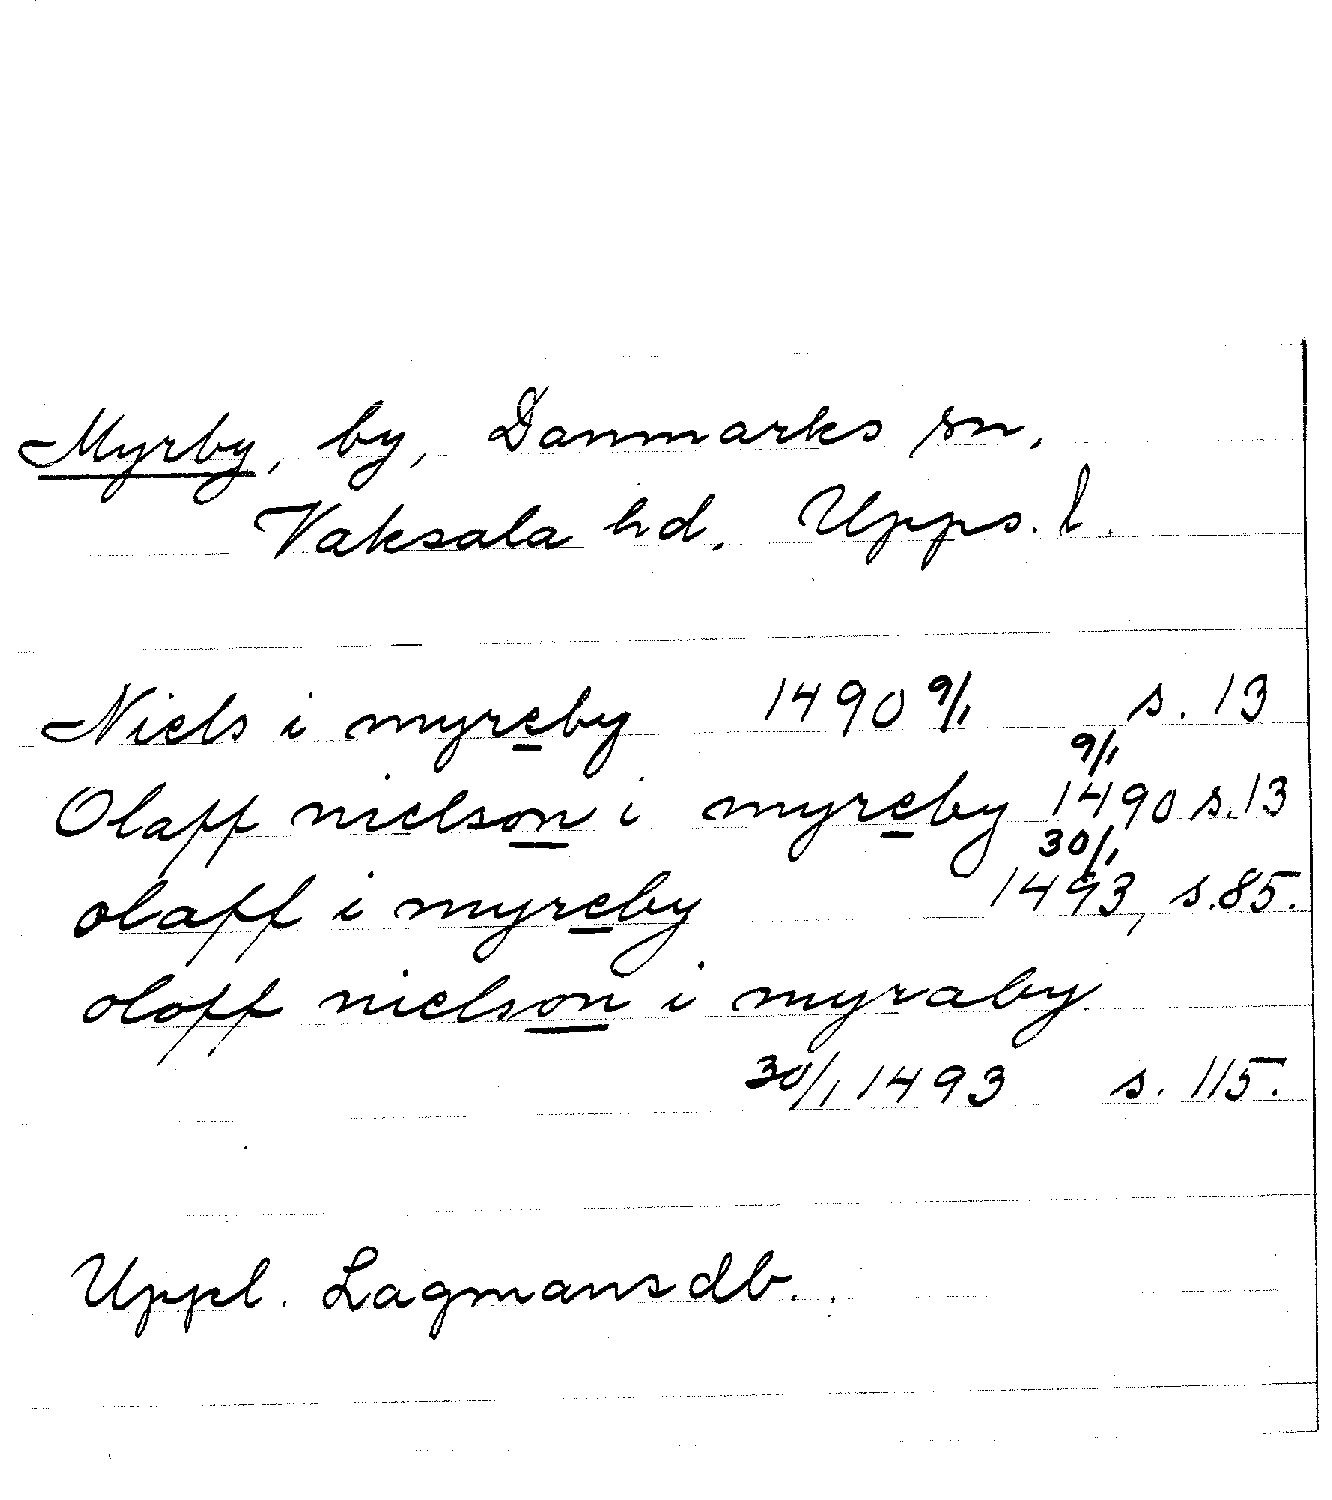 Myrby, by, Danmarks sn.
Vaksala hd. Upps. l.
Niels i myreby 1490 9/1 s. 13
Olaff nielson i myreby 9/1 1490 s.13
olaff i myreby 30/1 1493, s.85.
oloff nielson i myraby
30/1 1493 s. 115.
Uppl. Lagmansdb.